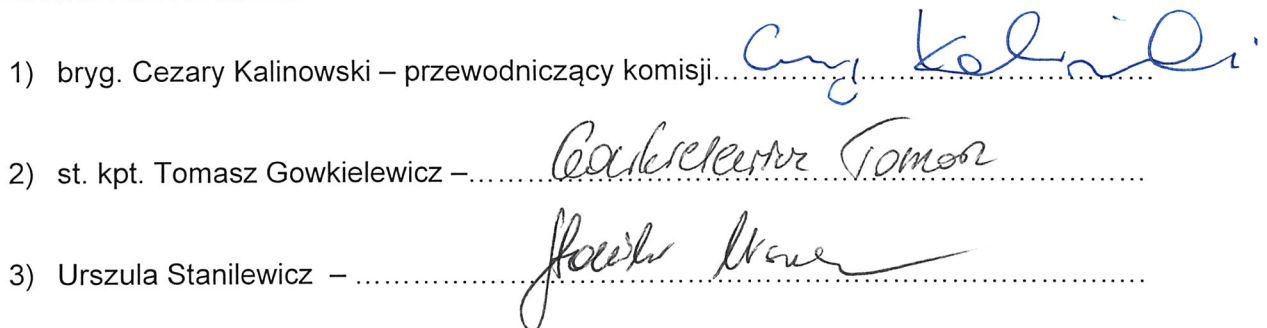 1) bryg. Cezary Kalinowski – przewodniczący komisji....
2) st. kpt. Tomasz Gowkielewicz –.... Gowkielewicz Tomasz
3) Urszula Stanilewicz – ....